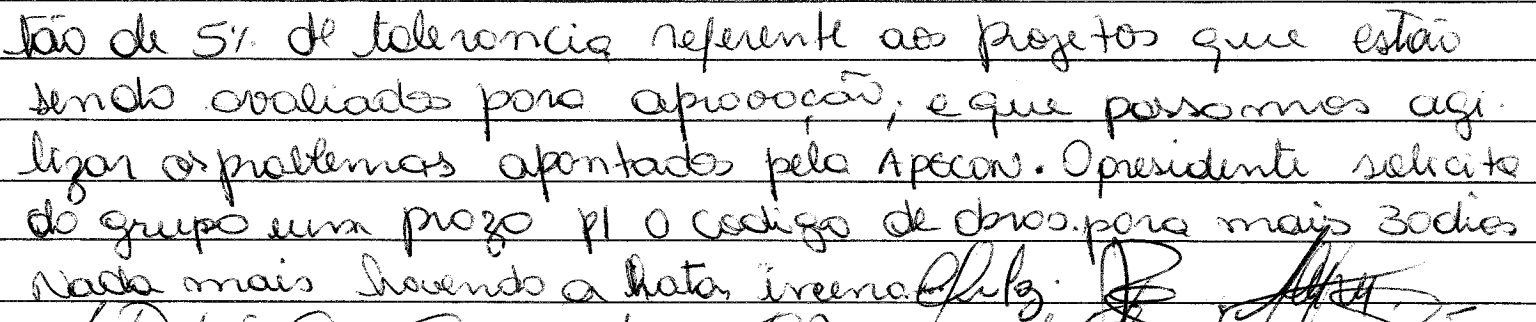 tão de 5% de tolerancia referente aos projetos que estão
sendo avaliados para aprovação, e que possamos agi
lizar os problemas apontados pela APECON. O presidente solicita
do grupo um prazo p/ o codigo de obras. para mais 30 dias
Nada mais havendo a